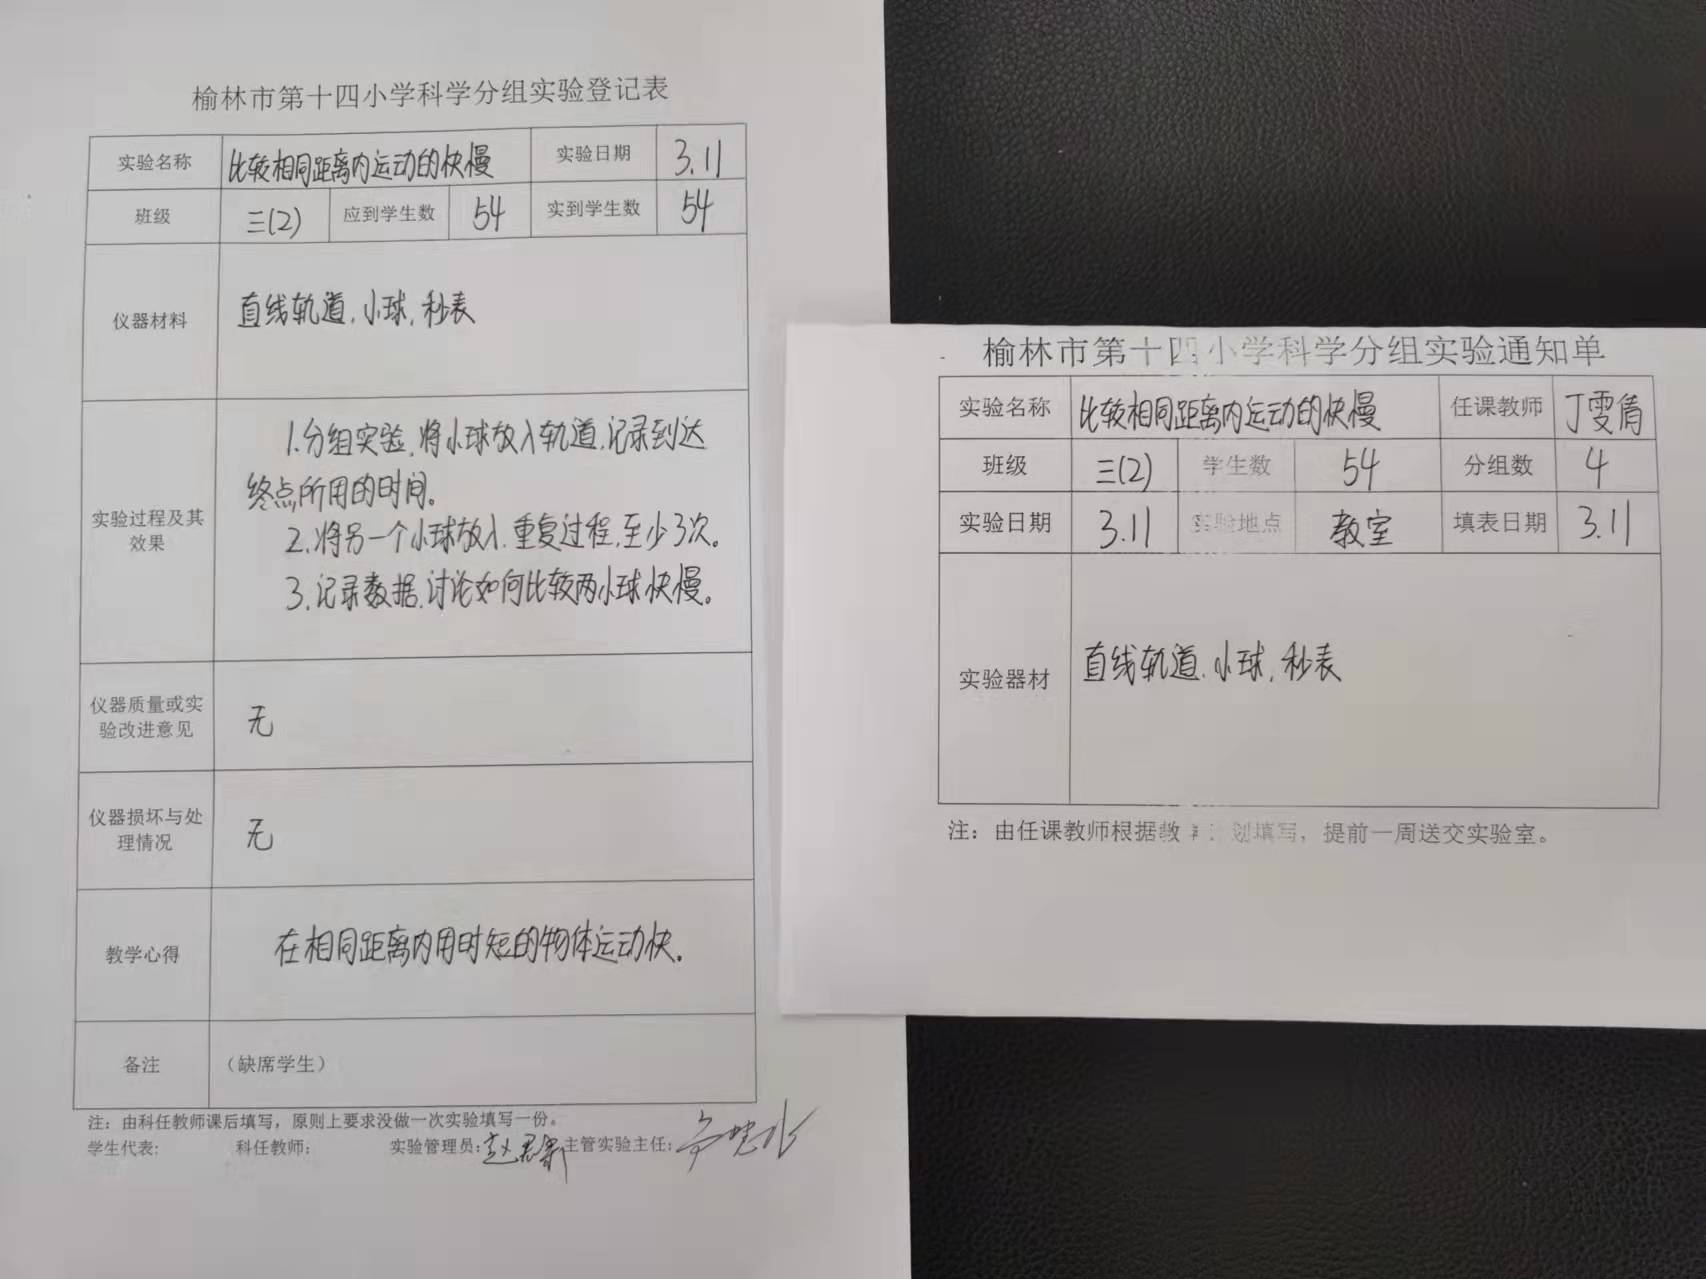 榆林市第十四小学科学分组实验登记表
实验名称 比较相同距离内运动的快慢 实验日期 3.11
班级 三(2) 应到学生数 54 实到学生数 54
仪器材料 直线轨道,小球,秒表
实验过程及其效果
1.分组实验,将小球放入轨道,记录到达
终点所用的时间。
2.将另一个小球放入,重复过程,至少3次。
3.记录数据,讨论如何比较两小球快慢。
仪器质量或实
验改进意见
无
仪器损坏与处
理情况
无
教学心得 在相同距离内用时短的物体运动快.
备注 (缺席学生)
注:由科任教师课后填写,原则上要求没做一次实验填写一份。
学生代表: 科任教师: 实验管理员: 主管实验主任:
榆林市第十四小学科学分组实验通知单
实验名称 比较相同距离内运动的快慢 任课教师 丁雯倩
班级 三(2) 学生数 54 分组数 4
实验日期 3.11 实验地点 教室 填表日期 3.11
实验器材 直线轨道.小球,秒表
注:由任课教师根据教学计划填写,提前一周送交实验室。